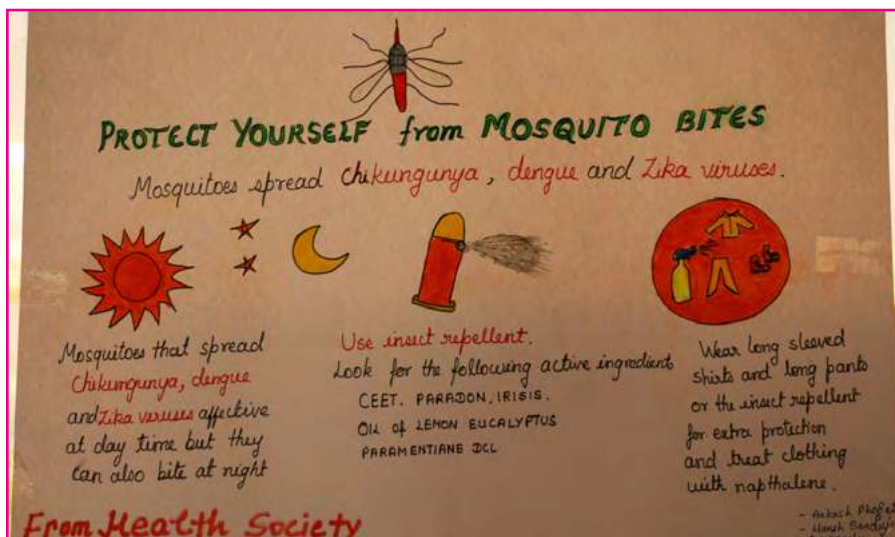 PROTECT YOURSELF from MOSQUITO BITES
Mosquitoes spread Chikungunya, dengue and Zika viruses.
Mosquitoes that spread
Chikungunya, dengue
and Zika viruses affective
at day time but they
can also bite at night
Use insect repellent.
Look for the following active ingredient
CEET. PARADON, IRISIS.
OIL of LEMON EUCALYPTUS
PARAMENTIANE DCL
Wear long sleeved
shirts and long pants
or the insect repellent
for extra protection
and treat clothing
with napthalene.
From Health Society